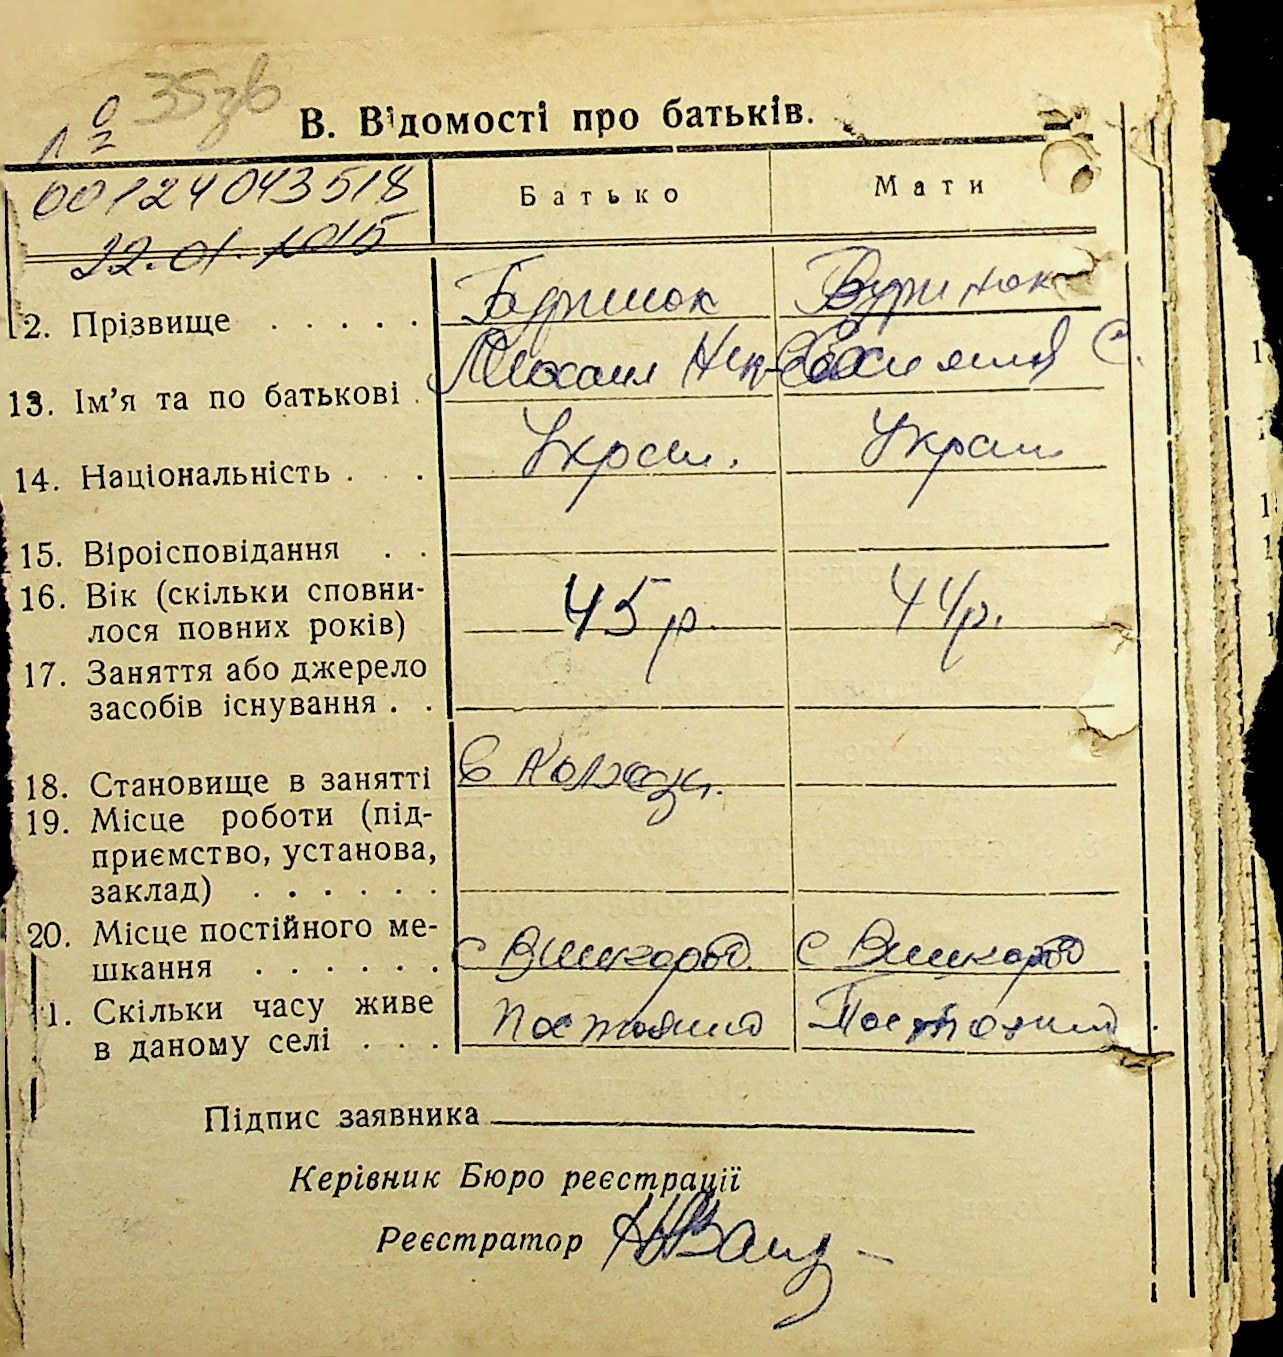 35зв
В. Відомості про батьків.
00124043518
22.01.2015
Батько Мати
2. Прізвище . . . . .
13. Ім'я та по батькові . Михаил С.
14. Національність . . . Украин. Украин
15. Віроісповідання . .
16. Вік (скільки сповни-
лося повних років) 45 р. 44 р.
17. Заняття або джерело
засобів існування . .
18. Становище в занятті в колхозі.
19. Місце роботи (під-
приємство, установа,
заклад) . . . . . .
20. Місце постійного ме-
шкання . . . . . . с Вишгород с Вишгород
1. Скільки часу живе
в даному селі . . . Постоянно Постоянно
Підпис заявника
Керівник Бюро реєстрації
Реєстратор